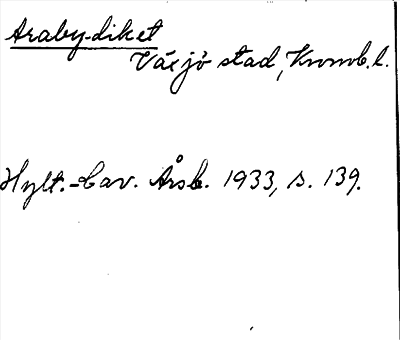 Araby-diket
Växjö stad, Kronob. l.
Hylt.-Cav. Årsb. 1933, s. 139.